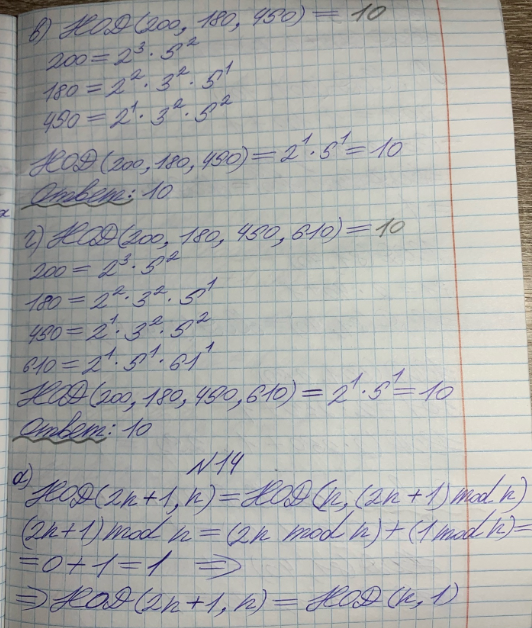 в) НОД(200, 180, 450) = 10
200 = 2³ · 5²
180 = 2² · 3² · 5¹
450 = 2¹ · 3² · 5²
НОД(200, 180, 450) = 2¹ · 5¹ = 10
Ответ: 10
г) НОД(200, 180, 450, 610) = 10
200 = 2³ · 5²
180 = 2² · 3² · 5¹
450 = 2¹ · 3² · 5²
610 = 2¹ · 5¹ · 61¹
НОД(200, 180, 450, 610) = 2¹ · 5¹ = 10
Ответ: 10
N14
а)
НОД(2n+1, n) = НОД(n, (2n+1) mod n)
(2n+1) mod n = (2n mod n) + (1 mod n) =
= 0 + 1 = 1 ⇒
⇒ НОД(2n+1, n) = НОД(n, 1)